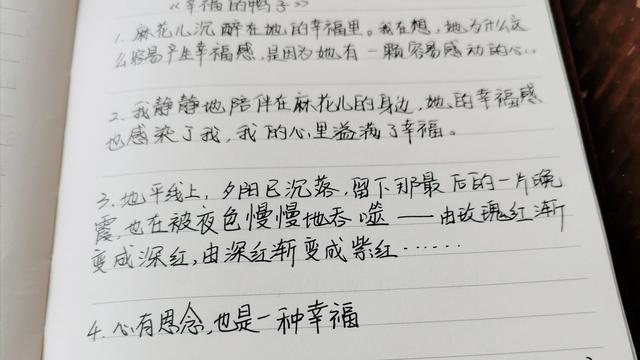 《幸福的鸭子》
1. 麻花儿沉醉在她的幸福里。我在想,她为什么这
么容易产生幸福感,是因为她有一颗容易感动的心…
2. 我静静地陪伴在麻花儿的身边,她的幸福感
也感染了我,我的心里溢满了幸福。
3. 地平线上,夕阳已沉落,留下那最后的一片晚
霞也在被夜色慢慢地吞噬——由玫瑰红渐
变成深红,由深红渐变成紫红……
4. 心有思念,也是一种幸福